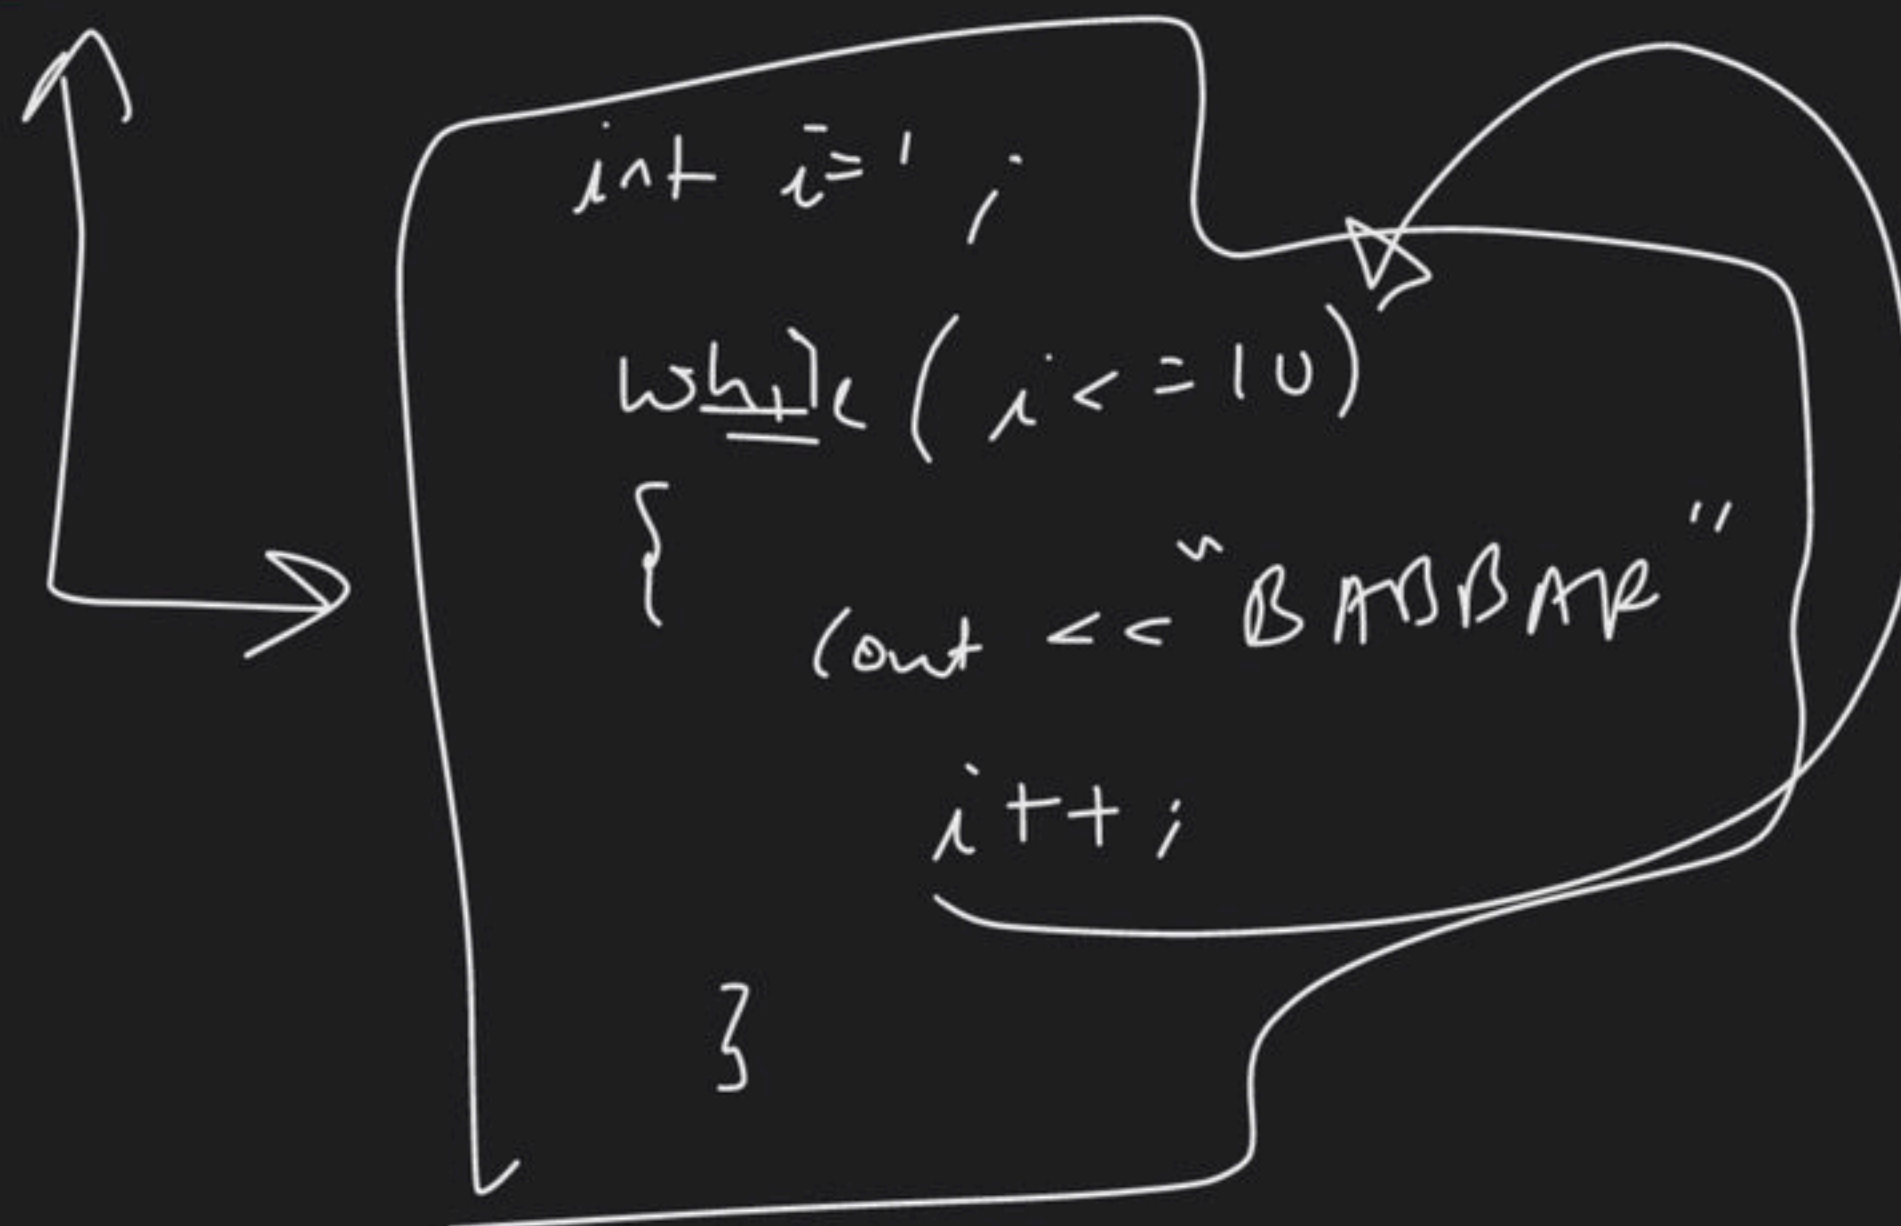 int i=1;
while(i<=10)
{
cout << "BABBAR"
i++;
}